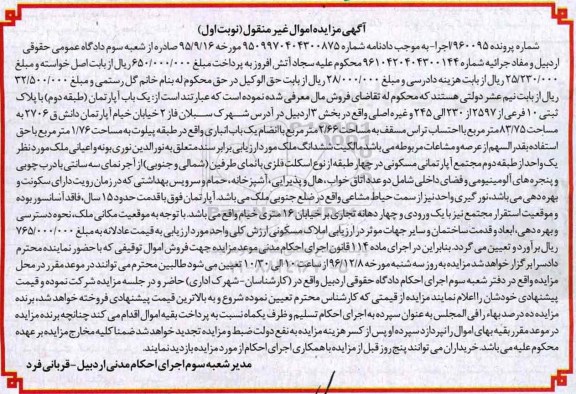 آگهی مزایده اموال غیر منقول (نوبت اول)
شماره پرونده ۹۶۰۰۹۵/اجرا- به موجب دادنامه شماره ۹۵۰۹۹۷۰۴۰۴۳۰۰۸۷۵ مورخه ۹۵/۹/۱۶ صادره از شعبه سوم دادگاه عمومی حقوقی
اردبیل و مفاد اجرائیه شماره ۹۶۱۰۴۲۰۴۰۴۳۰۰۱۴۴ محکوم علیه سجاد آتش افروز به پرداخت مبلغ ۶۵۰/۰۰۰/۰۰۰ ریال از بابت اصل خواسته و مبلغ
۲۵/۲۳۰/۰۰۰ ریال از بابت هزینه دادرسی و مبلغ ۲۸/۰۰۰/۰۰۰ ریال از بابت حق الوکیل در حق محکوم له بنام خانم گل رستمی و مبلغ ۳۲/۵۰۰/۰۰۰
ریال از بابت نیم عشر دولتی هستند که محکوم له تقاضای فروش مال معرفی شده نموده است که عبارتند است از: یک باب آپارتمان (طبقه دوم) با پلاک
ثبتی ۱۰ فرعی از ۲۵۹۷ از ۲۳۰ الی ۲۴۵ و غیره اصلی واقع در بخش ۳ اردبیل در آدرس شهرک سبلان فاز ۲ خیابان خیام آپارتمان دانش ق ۲۷۰۶ به
مساحت ۸۳/۷۵ متر مربع با احتساب تراس مسقف به مساحت ۲/۶۶ متر مربع با انضام یک باب انباری واقع در طبقه پیلوت به مساحت ۱/۷۶ متر مربع با حق
استفاده بقدر السهم از عرصه و مشاعات مربوطه می باشد مالکیت ششدانگ ملک مورد ارزیابی برابر سند متعلق به نورالدین نوری بونه و اعیانی ملک مورد نظر
یک واحد از طبقه دوم مجتمع آپارتمانی مسکونی در چهار طبقه از نوع اسکلت فلزی با نمای طرفین (شمالی و جنوبی) از آجر نمای سه سانتی با درب چوبی
و پنجره های آلومینیومی و فضای داخلی شامل دو عدد اتاق خواب، هال و پذیرایی، آشپزخانه، حمام و سرویس بهداشتی که در زمان رویت دارای سکونت و
بهره دهی می باشد، نورگیری واحد نیز از سمت حیاط مشاعی واقع در ضلع جنوبی ملک می باشد. آپارتمان فوق با قدمت حدود ۱۵ سال، فاقد آسانسور بوده
و موقعیت استقرار مجتمع نیز با یک ورودی و چهار دهانه تجاری بر خیابان ۱۶ متری خیام واقع می باشد. با توجه به موقعیت مکانی ملک، نحوه دسترسی
و بهره دهی، ابعاد و قدمت ساختمان و سایر جهات موثر در ارزیابی املاک مسکونی ارزش کلی واحد مورد ارزیابی به قیمت عادلانه به مبلغ ۷۶۵/۰۰۰/۰۰۰
ریال برآورد و تعیین می گردد. بنابراین در اجرای ماده ۱۱۴ قانون اجرای احکام مدنی موعد مزایده جهت فروش اموال توقیفی که با حضور نماینده محترم
دادسرا برگزار خواهد شد مزایده به روز سه شنبه مورخه ۹۶/۱۲/۸ از ساعت ۱۰ الی ۱۰/۳۰ تعیین می شود طالبین محترم می توانند در موعد مقرر در محل
مزایده واقع در دفتر شعبه سوم اجرای احکام دادگاه حقوقی اردبیل واقع در (کارشناسان - شهرک اداری) حاضر و در جلسه مزایده شرکت نموده و قیمت
پیشنهادی خودشان را اعلام نمایند مزایده از قیمتی که کارشناس محترم تعیین نموده شروع و به بالاترین قیمت پیشنهادی فروخته خواهد شد، برنده
مزایده ده درصد بها، را فی المجلس به عنوان سپرده به اجرای احکام تسلیم و ظرف یکماه نسبت به پرداخت بقیه اموال اقدام می کند چنانچه برنده مزایده
در موعد مقرر بقیه بهای اموال را نپردازد سپرده او پس از کسر هزینه مزایده به نفع دولت ضبط و مزایده تجدید خواهد شد ضمنا کلیه مخارج مزایده بر عهده
محکوم علیه می باشد. خریداران می توانند پنج روز قبل از مزایده با همکاری اجرای احکام از مورد مزایده بازدید نمایند.
مدیر شعبه سوم اجرای احکام مدنی اردبیل - قربانی فرد